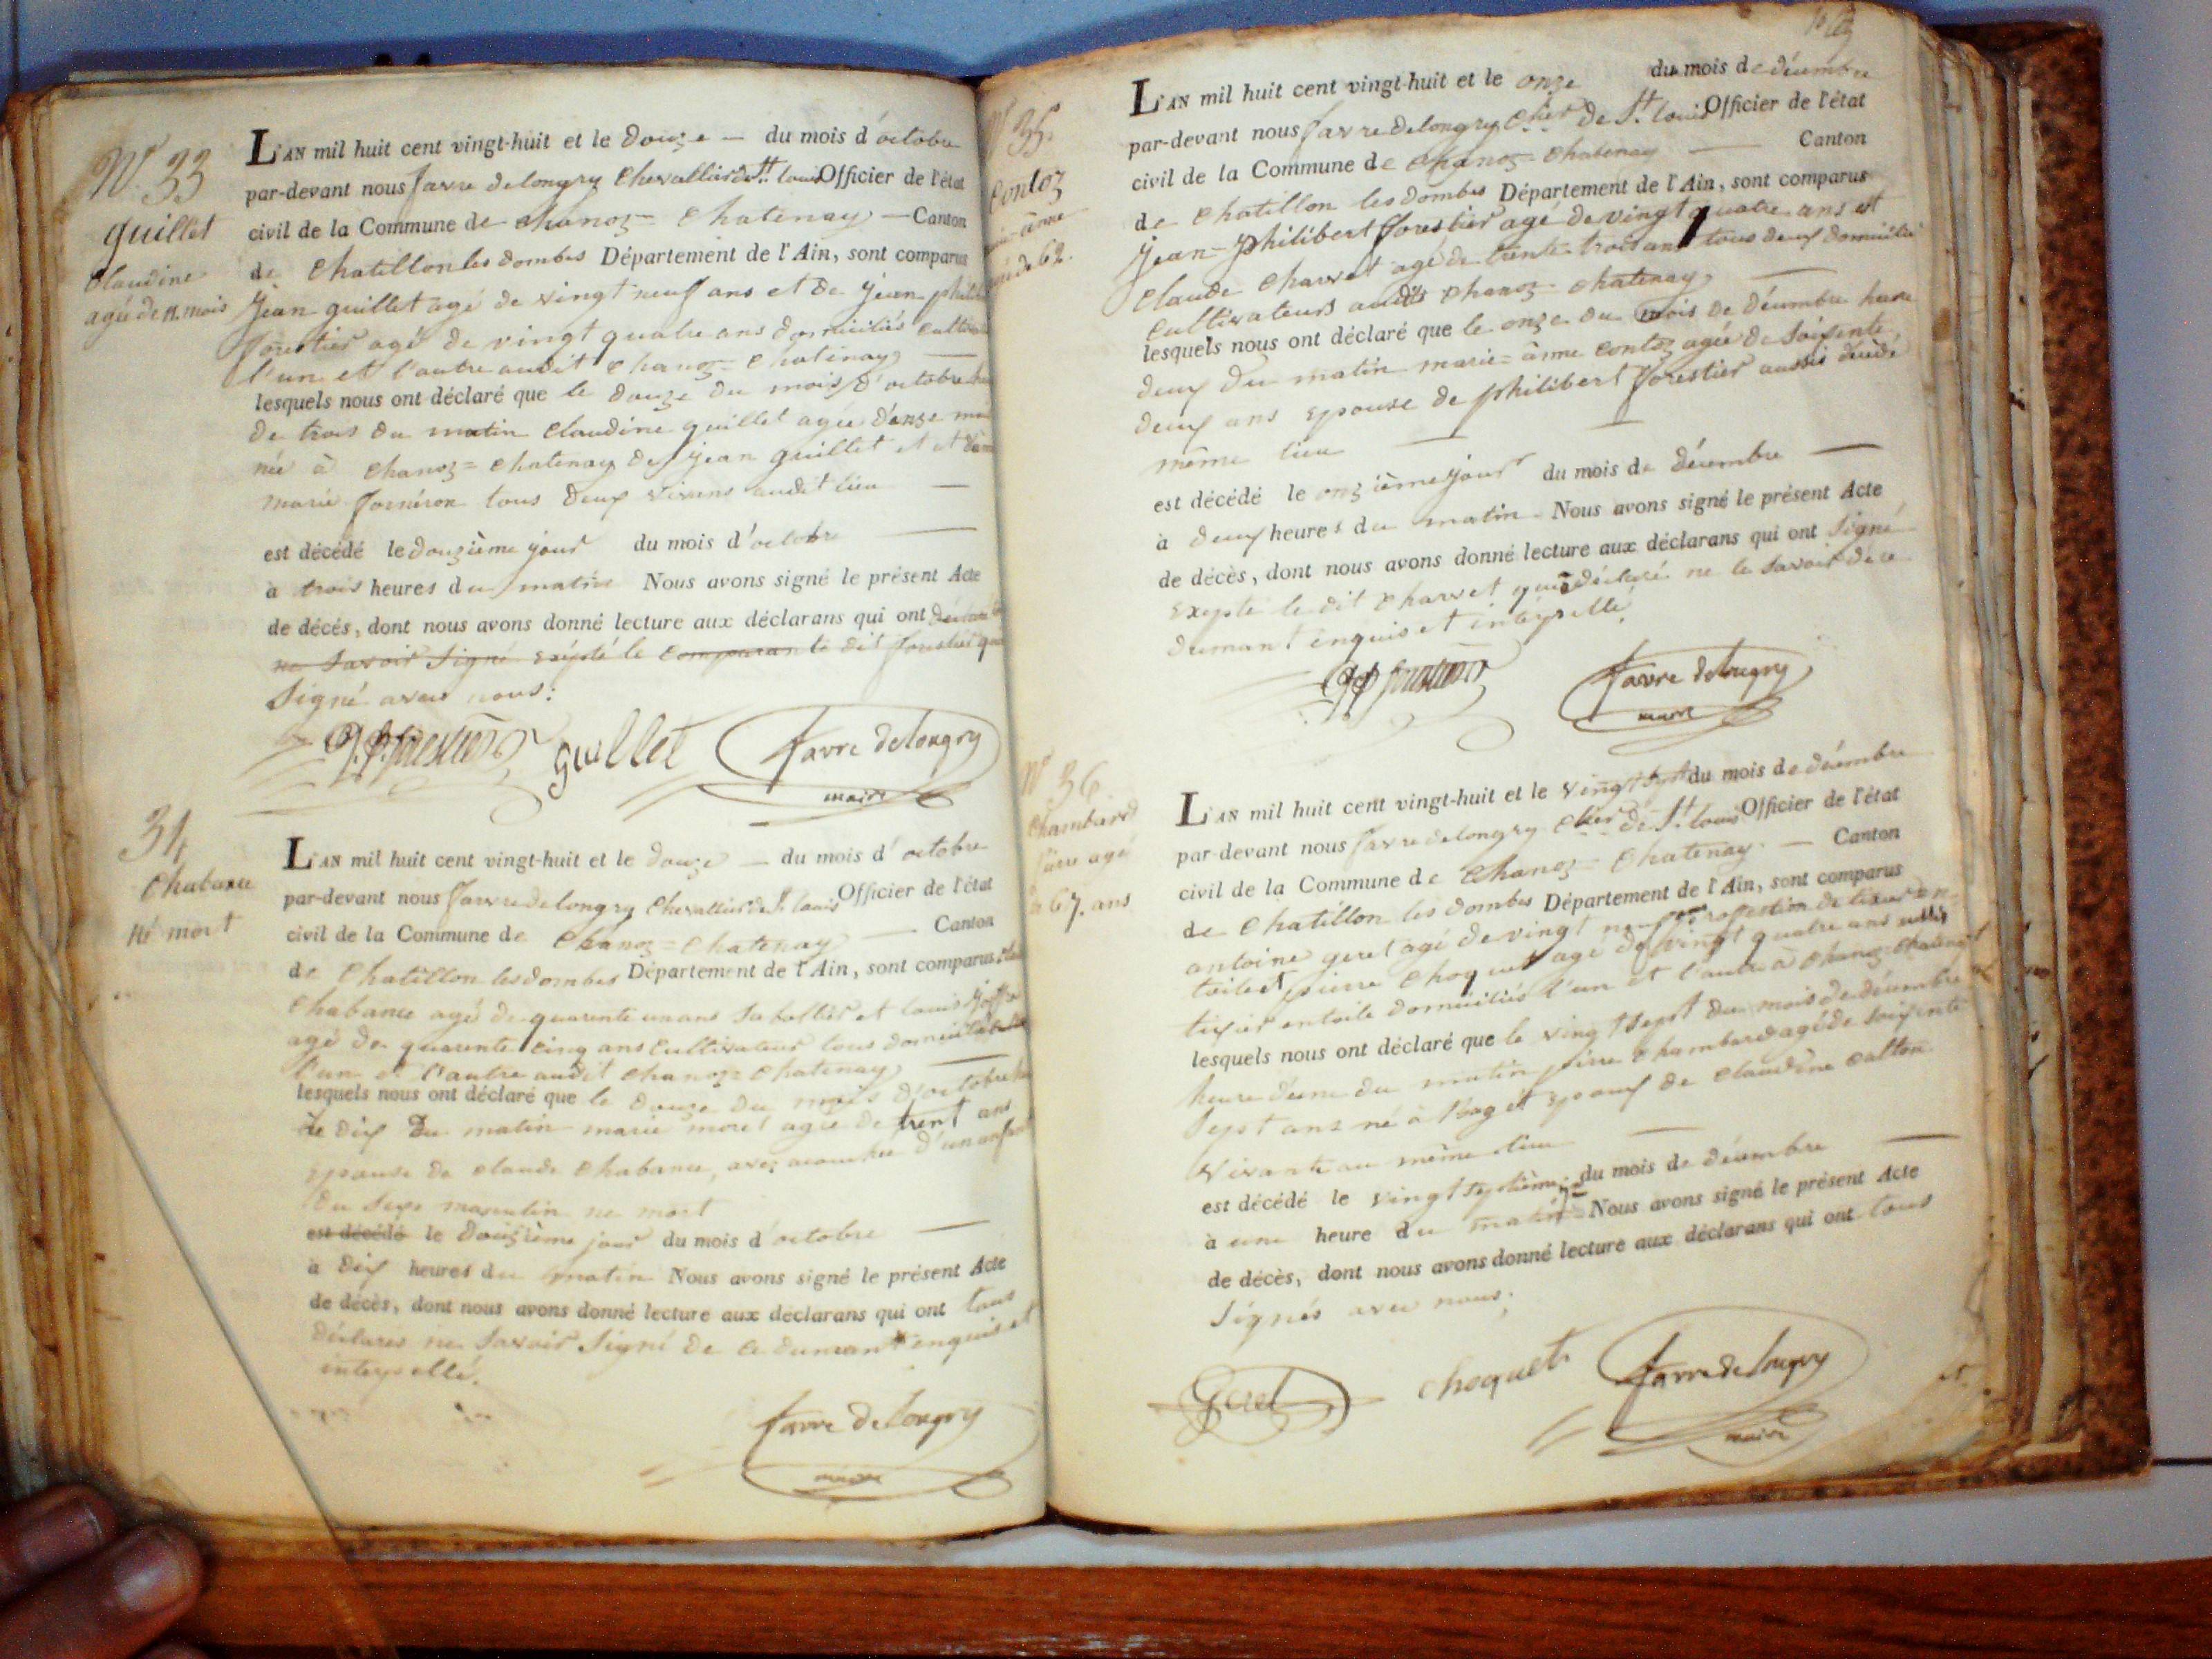 N° 33
guillet
Claudine
agée de 11. mois
L'AN mil huit cent vingt-huit et le douze — du mois d'octobre
par-devant nous favre delongry chevallier de St. louis Officier de l'état
civil de la Commune de chanoz = chatenay — Canton
de chatillon les dombes Département de l'Ain, sont comparus
jean guillet agé de vingt neuf ans et de jean
forestier agé de vingt quatre ans domiciliés
l'un et l'autre audit chanoz = chatenay —
lesquels nous ont déclaré que le douze du mois d'octobre
de trois du matin claudine guillet agée d'onze
née à chanoz = chatenay de jean guillet et et
marie tous deux vivans audit lieu —
est décédé le douzième jour du mois d'octobre —
à trois heures du matin Nous avons signé le présent Acte
de décés, dont nous avons donné lecture aux déclarans qui ont
ne savoir signé exepté le comparan le dit forestier
signé avec nous:
J. P. forestier guillet favre delongry
maire
34
chabance
né mort
L'AN mil huit cent vingt-huit et le douze — du mois d'octobre
par-devant nous favre delongry chevallier de St. louis Officier de l'état
civil de la Commune de chanoz = chatenay — Canton
de chatillon les dombes Département de l'Ain, sont comparus
chabance agé de quarente un ans sabottier et louis
agé de quarente cinq ans cultivateur tous
l'un et l'autre audit chanoz = chatenay —
lesquels nous ont déclaré que le douze du mois d'octobre
de dix du matin marie morel agée de trent ans
epouse de claude chabance, avez acouchée d'un enfant
du sexe masculin ne mort
est décédé le douzième jour du mois d'octobre —
à dix heures du matin Nous avons signé le présent Acte
de décès, dont nous avons donné lecture aux déclarans qui ont tous
déclarés ne savoir signé de ce dumant enquis et
interpellé.
favre delongry
maire
N° 35.
contoz
de 62.
L'AN mil huit cent vingt-huit et le onze du mois de décembre
par-devant nous favre delongry cher de St. louis Officier de l'état
civil de la Commune de chanoz = chatenay — Canton
de chatillon les dombes Département de l'Ain, sont comparus
jean = philibert forestier agé de vingt quatre ans et
claude charvet agé de trente trois ans tous deux domiciliés
cultivateurs audits chanoz = chatenay —
lesquels nous ont déclaré que le onze du mois de décembre heure
deux du matin marie = anne contoz agée de soixente
deux ans epouse de philibert forestier aussi décédé
même lieu —
est décédé le onzième jour du mois de décembre —
à deux heures du matin Nous avons signé le présent Acte
de décès, dont nous avons donné lecture aux déclarans qui ont signé
exepté le dit charvet qui a déclaré ne le savoir de ce
dumant enquis et interpellé.
J P forestier favre delongry
maire
N° 36
chambard
agé
67. ans
L'AN mil huit cent vingt-huit et le vingt sept du mois de décembre
par devant nous favre delongry cher de St. louis Officier de l'état
civil de la Commune de chanoz = chatenay — Canton
de chatillon les dombes Département de l'Ain, sont comparus
antoine geret agé de vingt neuf profession de tixier en
toile et pierre choquet agé de vingt quatre ans
tixier en toile domiciliés l'un et l'autre à chanoz = chatenay
lesquels nous ont déclaré que le vingt sept du mois de décembre
heure d'une du matin pierre chambard agé de soixente
sept ans né à et epoux de claudine catton
vivante au même lieu —
est décédé le vingt septième du mois de décembre —
à une heure du matin Nous avons signé le présent Acte
de décès, dont nous avons donné lecture aux déclarans qui ont tous
signés avec nous;
Geret choquet favre delongry
maire